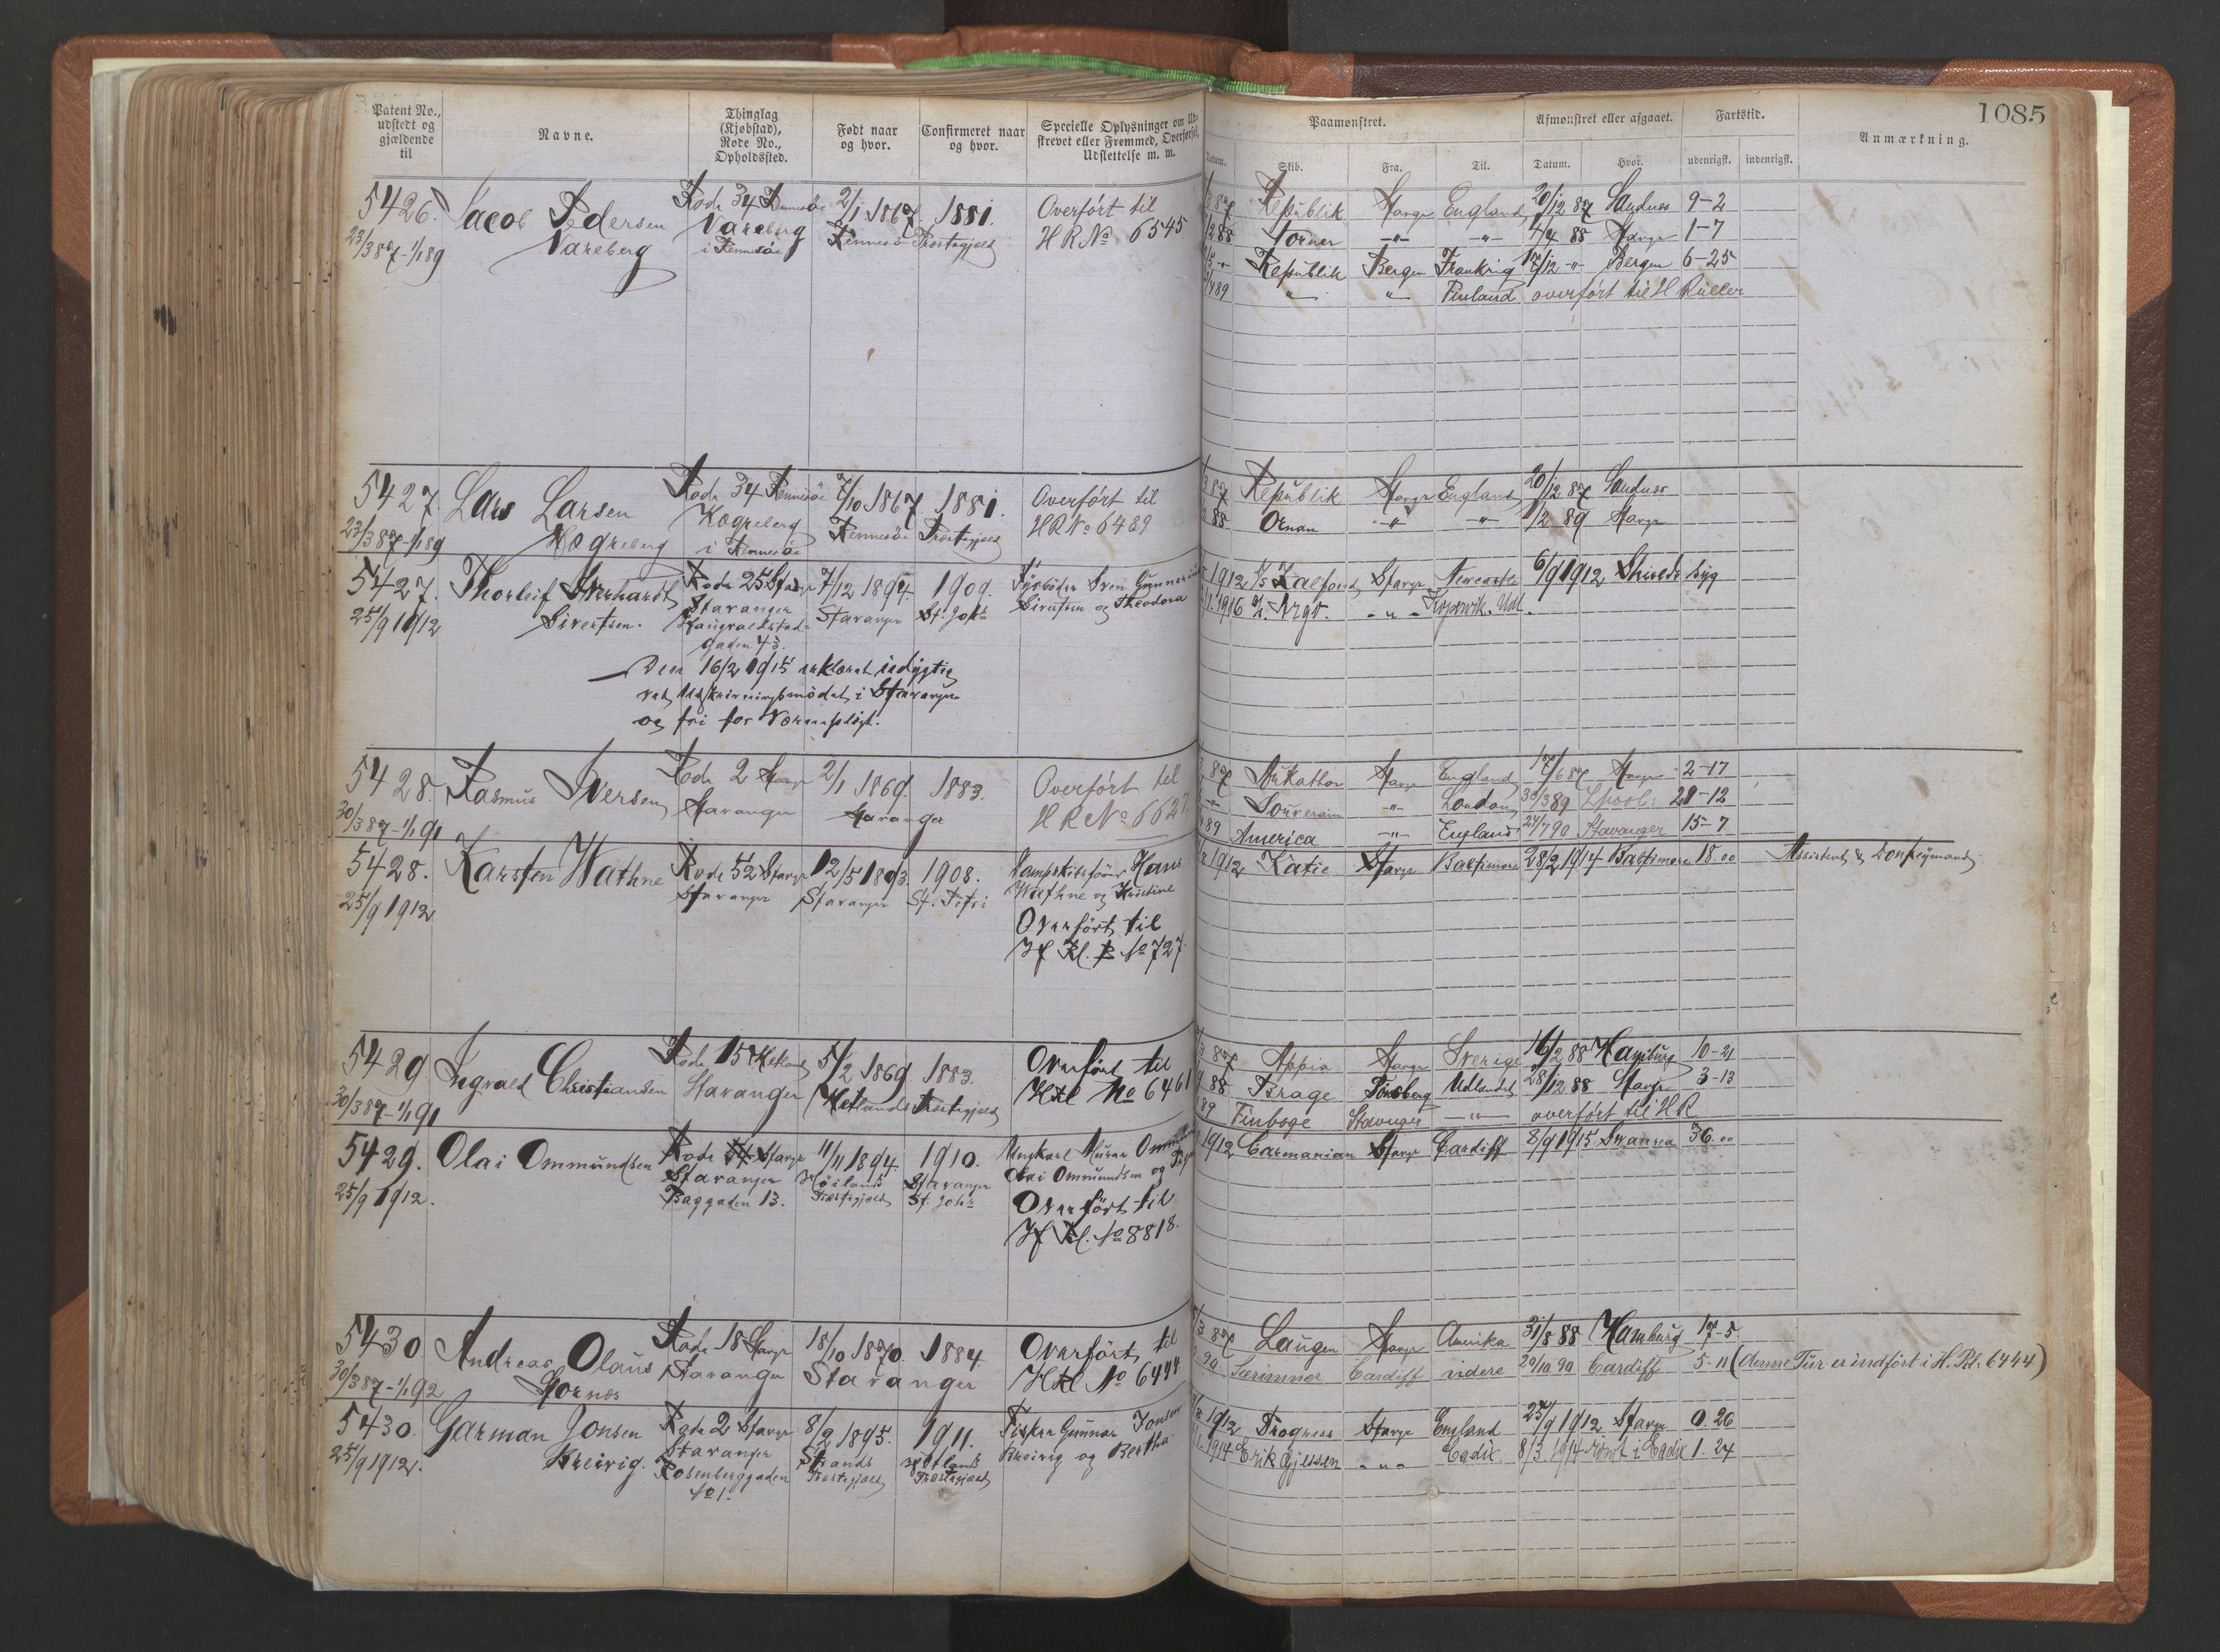 1085
Patent No., udstedt og gjældende til
Navne.
Thinglag (Kjøbstad), Rode No., Opholdssted.
Født naar og hvor.
Confirmeret naar og hvor.
Specielle Oplysninger om Ud-
skrevet eller Fremmed, Overførsel,
Udslettelse m. m.
Paamønstret.
Datum. Skib. Fra. Til.
Afmønstret eller afgaaet.
Datum. Hvor.
Fartstid.
udenrigsk. indenrigsk.
Anmærkning.
5426. Jacob Pedersen Rode 34 Rennesöe 2/1 1867 1881. Overført til
23/3 87-1/1 89 Vareberg Vareberg Rennesö Præstegjæld HR No 6545
i Rennesöe
87 Republik Stavgr England 20/12 87 Sandnes 9-2
88 Torner -"- -"- 4/4 88 Stavgr 1-7
Republik Bergen Frankrig 17/12 -"- Bergen 6-25
89 " " Finland overført til H Ruller
5427. Lars Larsen Rode 34 Rennesöe 7/10 1867 1881. Overført til
23/3 87-1/1 89 Hægreberg Hægreberg Rennesöe Præstegjæld HR No 6489
i Rennesöe
87 Republik Stavgr England 20/12 87 Sandnes
88 Ornan -"- -"- 1/2 89 Stavgr
5427. Thorleif Rode 25 Stavgr 7/12 1894. 1909. Fyrbøder Sven Gunnerius
25/9 1912 Sivertsen. Stavanger Stavanger St. Joh. Sivertsen og Theodora
Haugvaldstad-
gaden 43.
Den 16/2 1915 erklæret udygtig
ved Udskrivningsmödet i Stavanger
og fri for Værnepligt.
1912 Stavgr Newcastle 6/9 1912 Shields syg
1916 Kopervik. Udl.
5428. Rasmus Iversen Rode 2 Stavgr 2/1 1869. 1883. Overført til
30/3 87-1/1 91 Stavanger Stavanger HR No 6627
87 Stavgr England 17/6 87 Stavgr 2-17
-"- Souverain -"- London 30/3 89 Lpool: 21-12
89 America -"- England 24/7 90 Stavanger 15-7
5428. Karsten Wathne Rode 52 Stavgr 12/5 1893. 1908. Dampskibsfører Hans
25/9 1912 Stavanger Stavanger St. Petri Wathne og Kristine
Overført til
H Rl. B No 727.
1912 Katie Stavgr Baltimore 28/2 1914 Baltimore 18.00 Assistent & Donkeymand.
5429 Ingvald Christiansen Rode 15 Hetland 5/2 1869 1883. Overført til
30/3 87-1/1 91 Stavanger Hetlands Præstegjæld HRl No 6461
87 Appia Stavgr Sverige 16/2 88 Hamburg 10-21
88 Brage Tönsberg Udlandet 28/12 88 Stavgr 3-13
89 Finboge Stavanger -"- overført til HR
5429. Olai Ommundsen Rode Stavgr 11/11 1894. 1910.
25/9 1912. Stavanger Höilands Stavanger Olai Ommundsen og
Baggaden 13. Præstegjæld St. Joh.
Overført til
H Rl. No 8818.
1912 Carmanian Stavgr Cardiff 8/9 1915 Swansea 36.00
5430 Andreas Olaus Rode 18 Stavgr 18/10 1870. 1884 Overført til
30/3 87-1/1 92 Hornæs Stavanger Stavanger HRl No 6444
87 Laugen Stavgr Amerika 31/8 88 Hamburg 17-5.
90 Særimner Cardiff videre 29/10 90 Cardiff 5-11 (denne Tur er indført i H. Rl. 6444)
5430. Garman Jonsen Rode 2 Stavgr 8/9 1895. 1911. Fisker Gunnar Jonsen
25/9 1912. Breivig. Stavanger Strands Hetlands Breivig og Bertha
Rosenberggaden Præstegjæld Præstegjæld
No 1.
1912 Progress Stavgr England 25/9 1912 Stavgr 0.26
1914 Erik Gjessen -"- Cadix 8/3 1914 rømt i Cadix 1.24